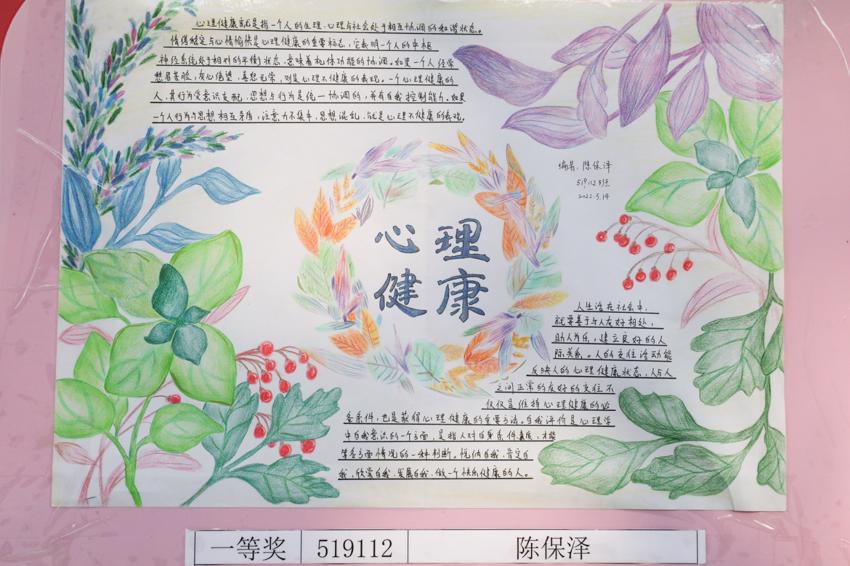 心理健康就是指一个人的生理、心理与社会处于相互协调的和谐状态。
情绪稳定与心情愉快是心理健康的重要标志，它表明一个人的中枢
神经系统处于相对的平衡状态，意味着机体功能的协调。如果一个人经常
愁眉苦脸，灰心绝望，喜怒无常，则是心理不健康的表现。一个心理健康的
人，其行为受意识支配，思想与行为是统一协调的，并有自我控制能力。如果
一个人行为与思想相互矛盾，注意力不集中，思想混乱，就是心理不健康的表现。
编号：陈保泽
519112班
2022.5.14
心理
健康
人生活在社会中，
就要善于与人友好相处，
助人为乐，建立良好的人
际关系。人的交往活动能
反映人的心理健康状态，人与人
之间正常的友好的交往不
仅仅是维持心理健康的必
备条件，也是获得心理健康的重要方法。自我评价是心理学
中自我意识的一个方面，是指人对自身条件、素质、才能
等各方面情况的一种判断。悦纳自我，肯定自
我，欣赏自我，发展自我，做一个快乐健康的人。
一等奖 519112 陈保泽